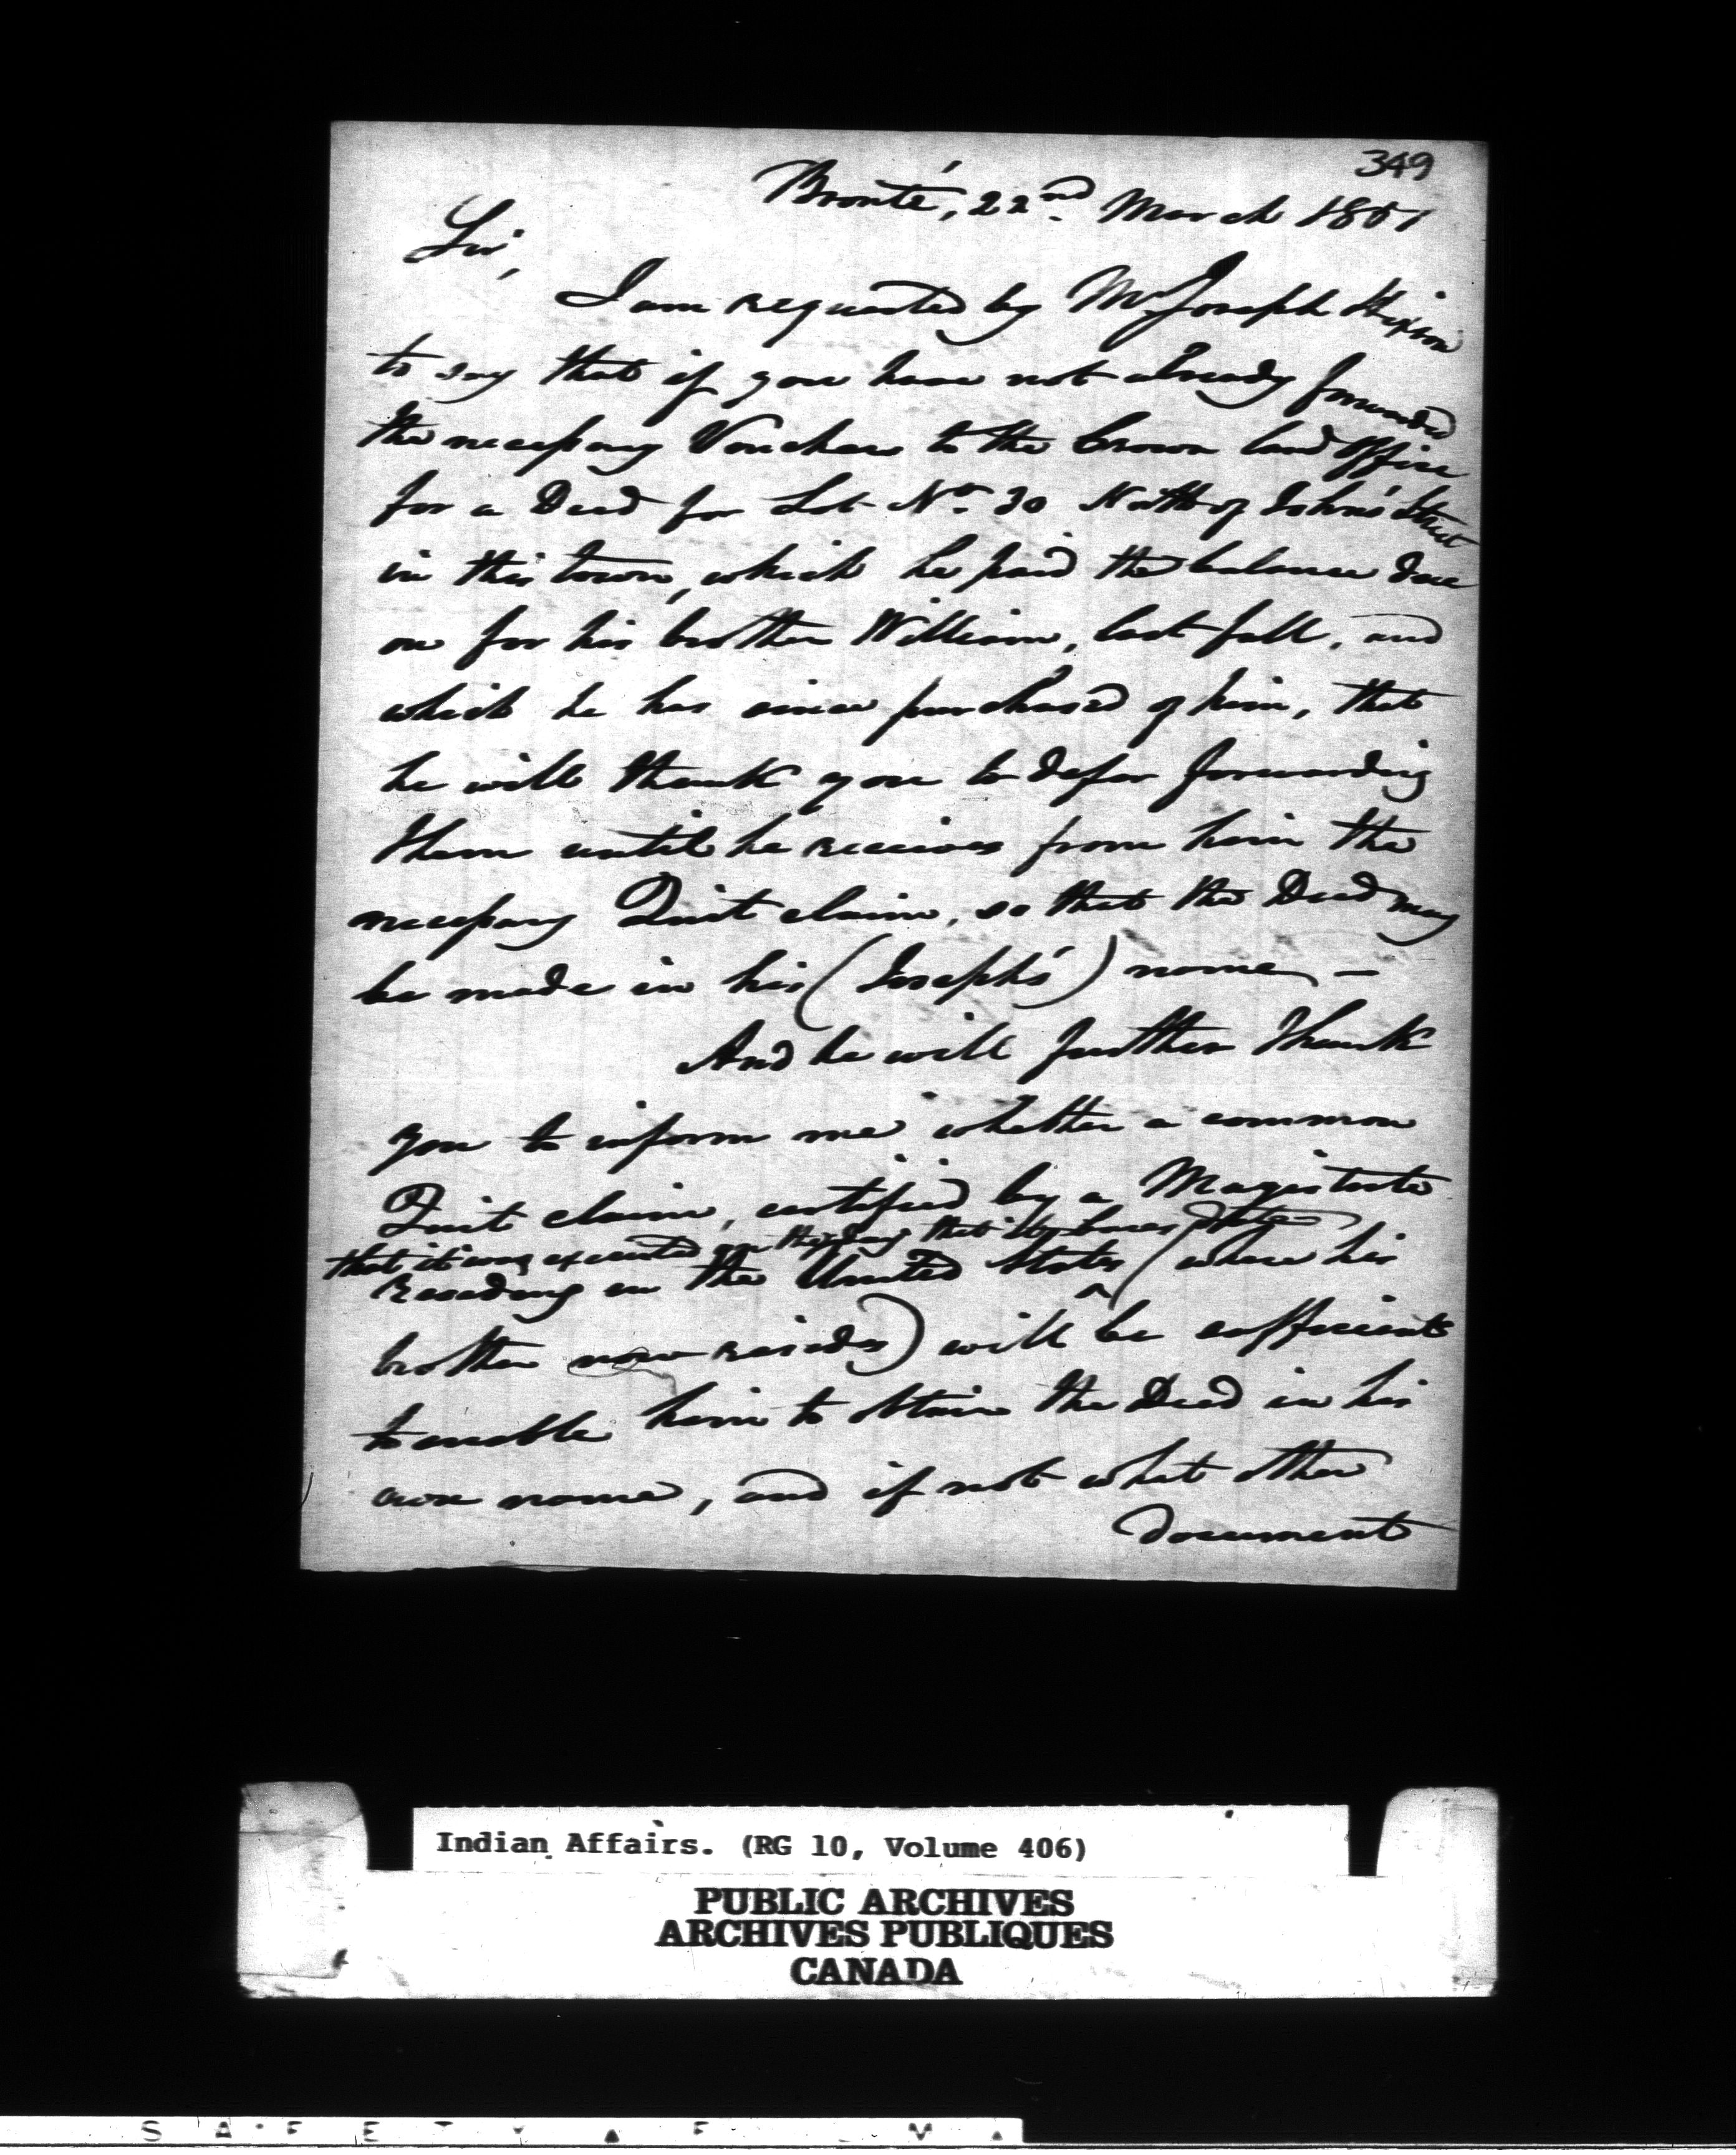 349
Bronté, 22nd March 1851
Sir,
I am requested by Mr Joseph Hixson
to say that if you have not already forwarded
the necessary Vouchers to the Crown land Office
for a Deed for Lot No. 30 North of John's Street
in this town, which he paid the balance due
on for his brother William, last fall, and
which he has since purchas'd of him, that
he will thank you to defer forwarding
them until he receives from him the
necessary Quit claim, so that the Deed may
be made in his (Joseph's) name —
And he will further thank
you to inform me whether a common
Quit claim, certified by a Magistrate
that it was executed on the day that it bears date
residing in the United States ^ (where his
brother now resides) will be sufficient
to enable him to obtain the Deed in his
own name, and if not what other
document
Indian Affairs. (RG 10, Volume 406)
PUBLIC ARCHIVES
ARCHIVES PUBLIQUES
CANADA